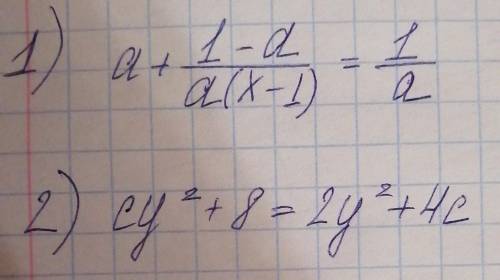 1) a + \frac{1-a}{a(x-1)} = \frac{1}{a}
2) cy² + 8 = 2y² + 4c